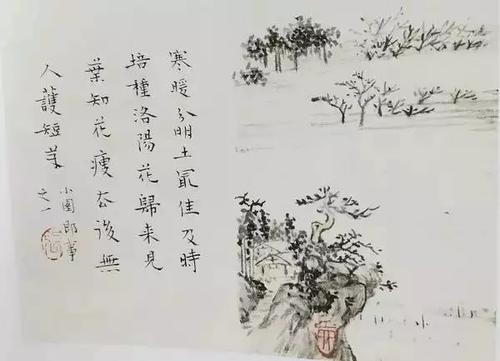 寒暖分明土最佳及時
培種洛陽花歸來見
葉知花瘦春後無
人護短茅
小園即事
之一